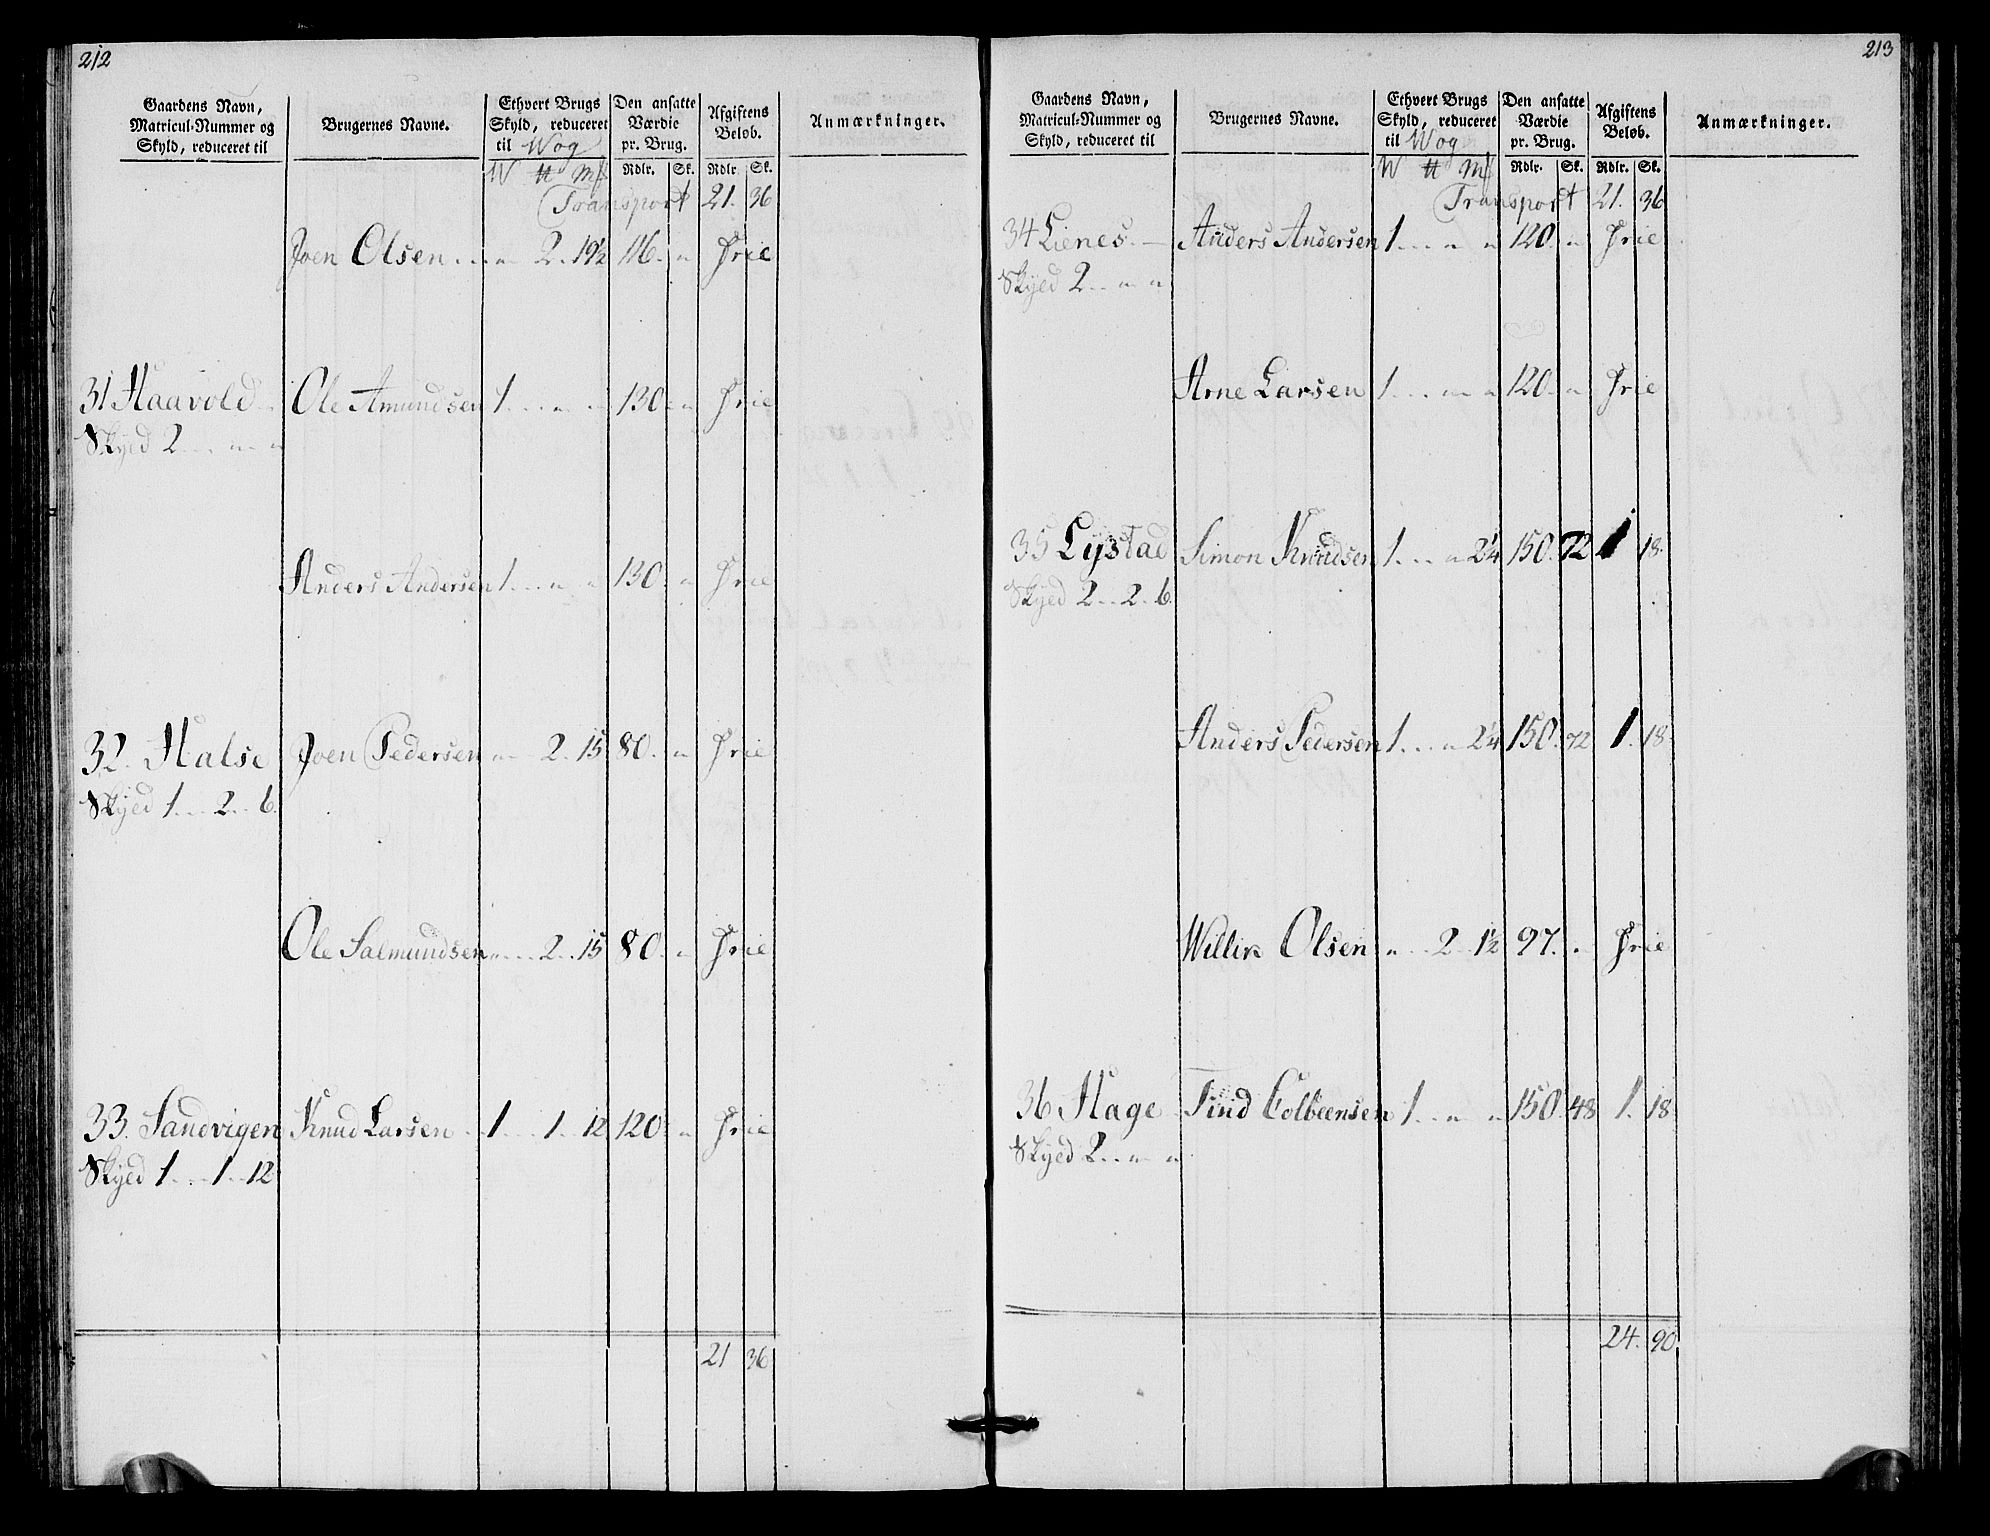 212
Gaardens Navn, Matricul-Nummer og Skyld, reduceret til
Brugernes Navne.
Ethvert Brugs Skyld, reduceret til Wog
Den ansatte Værdie pr. Brug.
Afgiftens Beløb.
Anmærkninger.
W ℔ Mk Rdlr. Sk. Rdlr. Sk.
Transport 21. 36
Joen Olsen ... „ 2. 19½ 116. „ Frie
31 Haavold Ole Amundsen 1 ... „ „ 130 „ Frie
Skyld 2 ... „ „
Anders Andersen 1 ... „ „ 130 „ Frie
32. Halse Joen Pedersen „ 2. 15 80. „ Frie
Skyld 1 .. 2 .. 6.
Ole Salmundsen „ .. 2 .. 15 80. „ Frie
33. Sandvigen Knud Larsen 1 .. 1 .. 12 120 „ Frie
Skyld 1 ... 1 .. 12
21 36
213
Gaardens Navn, Matricul-Nummer og Skyld, reduceret til
Brugernes Navne.
Ethvert Brugs Skyld, reduceret til Wog
Den ansatte Værdie pr. Brug.
Afgiftens Beløb.
Anmærkninger.
W ℔ Mk Rdlr. Sk. Rdlr. Sk.
Transport 21. 36
34 Lienes Anders Andersen 1 ... „ „ 120. „ Frie
Skyld 2 .. „ „
Arne Larsen 1 ... „ „ 120. „ Frie
35 Lystad Simon Knudsen 1 ... „ 2¼ 150. 72 1 18.
Skyld 2 .. 2. 6.
Anders Pedersen 1 ... „ 2¼ 150. 72 1. 18
Olsen „ .. 2 1½ 97. „ Frie
36 Hage Find Colbeensen 1 ... „ „ 150. 48 1. 18
Skyld 2 .. „ „
24. 90